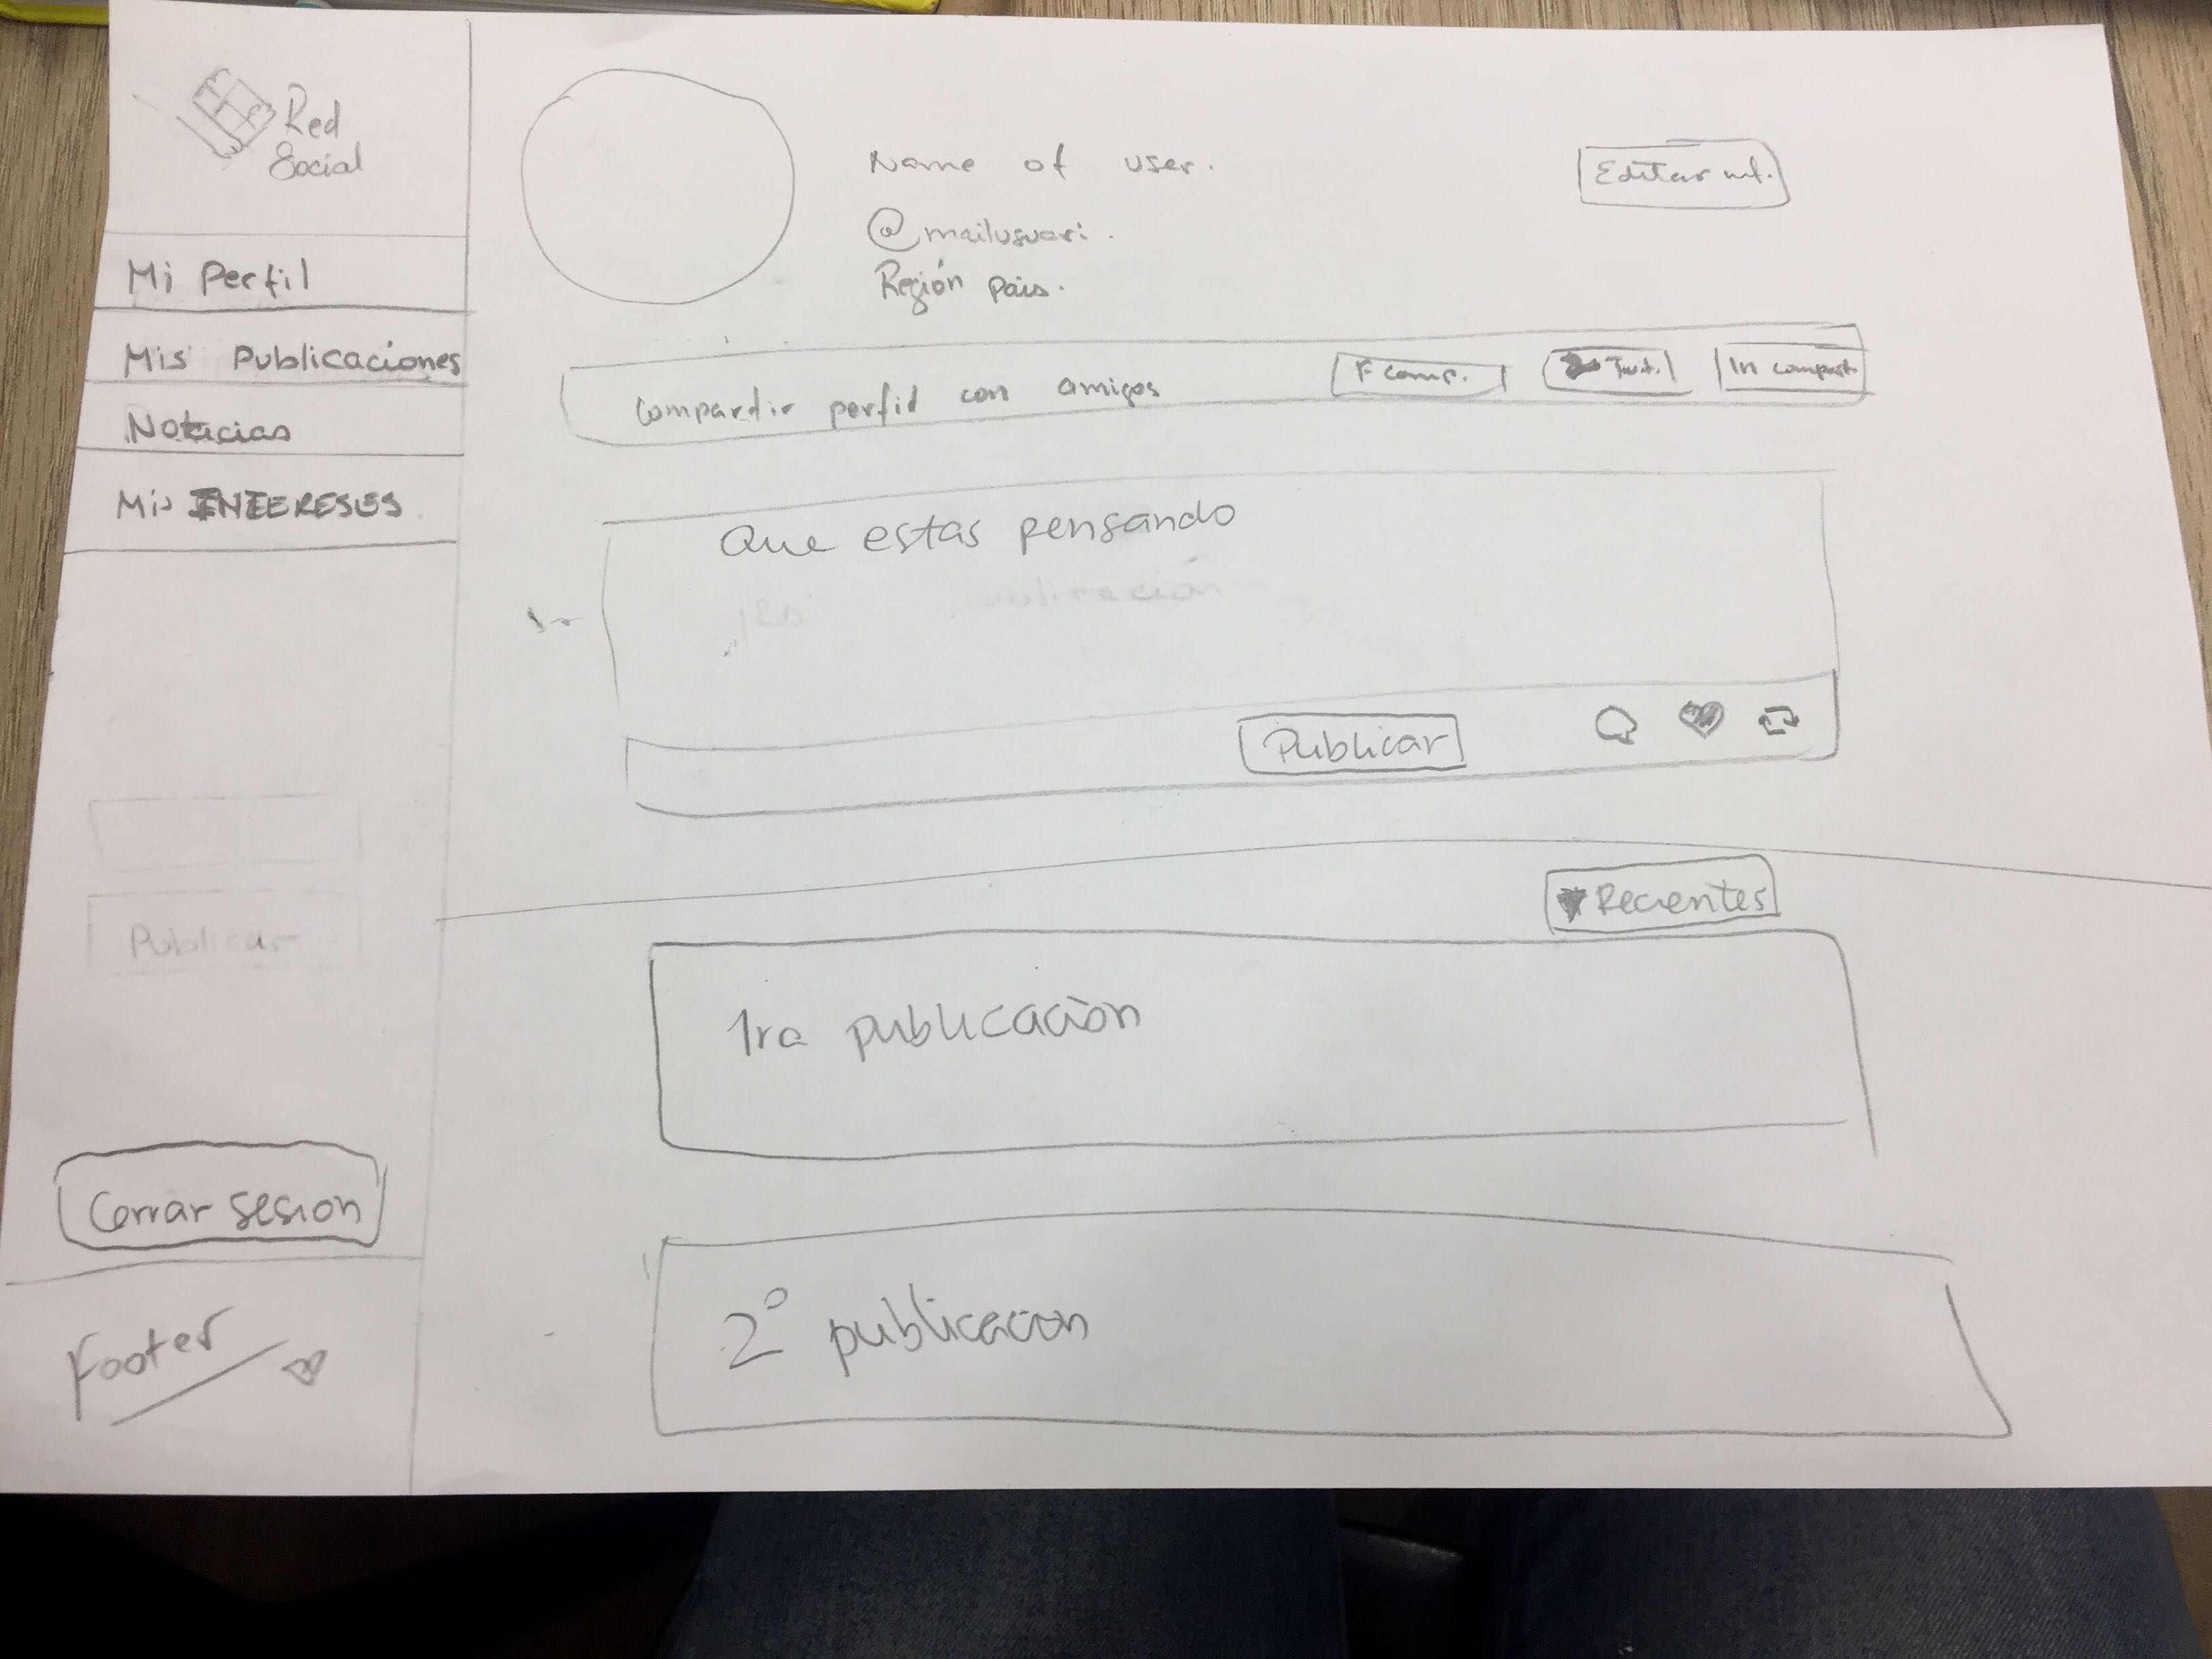 Red
Social
Mi Perfil
Mis Publicaciones
Noticias
Mis INTERESES
Publicar
Cerrar sesion
Footer
Name of user.
@mailusuari.
Región pais.
Editar inf.
Compartir perfil con amigos
F comp.
Twit.
In compart
Que estas pensando
publicación
Publicar
Recientes
1ra publicación
2° publicacion